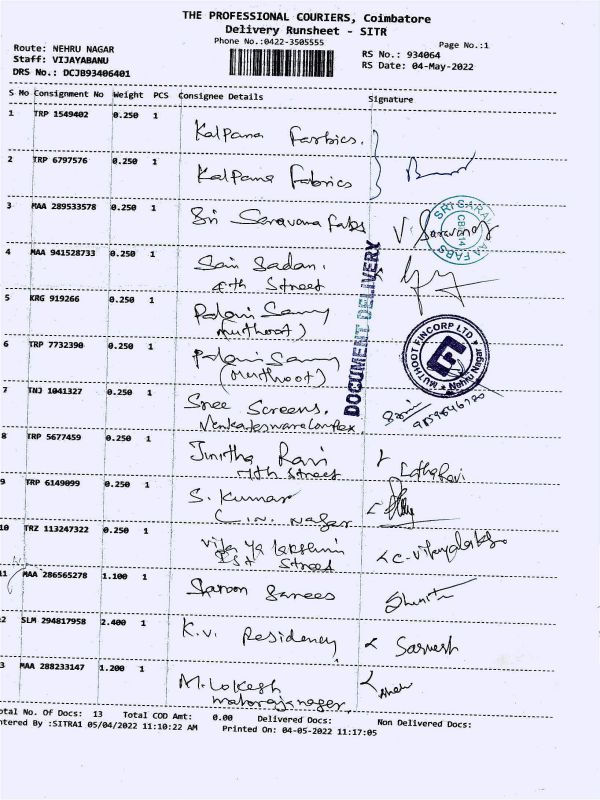 THE PROFESSIONAL COURIERS, Coimbatore
Delivery Runsheet - SITR
Phone No.:0422-3505555
Page No.:1
Route: NEHRU NAGAR
Staff: VIJAYABANU
DRS No.: DCJB93406401
RS No.: 934064
RS Date: 04-May-2022
S No Consignment No Weight PCS Consignee Details Signature
1 TRP 1549402 0.250 1 Kalpana Farbics.
2 TRP 6797576 0.250 1 Kalpana Fabrics
3 MAA 289533578 0.250 1 Sri Saravana Fabs V. Saravana
SRI SARA
AA FABS
4 MAA 941528733 0.250 1 Sai Sadan.
4th Street
DOCUMENT DELIVERY
5 KRG 919266 0.250 1 Palani Samy
(muthoot)
6 TRP 7732390 0.250 1 Palani Samy
(muthoot)
MUTHOOT FINCORP LTD
Nehru Nagar
7 TNJ 1041327 0.250 1 Sree Screens.
Venkateswara Complex
8 TRP 5677459 0.250 1 Jinitha Ravi
7th Street
Latha Ravi
9 TRP 6149099 0.250 1 S. Kumar
C.N. Nagar
10 TRZ 113247322 0.250 1 Vijayalakshmi
1st Street
C. Vijayalaks
11 MAA 286565278 1.100 1 Saroon Sarees
2 SLM 294817958 2.400 1 K.V. Residency
3 MAA 288233147 1.200 1 M. Lokesh
maharaja nager,
otal No. Of Docs: 13 Total COD Amt: 0.00 Delivered Docs: Non Delivered Docs:
ntered By :SITRA1 05/04/2022 11:10:22 AM Printed On: 04-05-2022 11:17:05